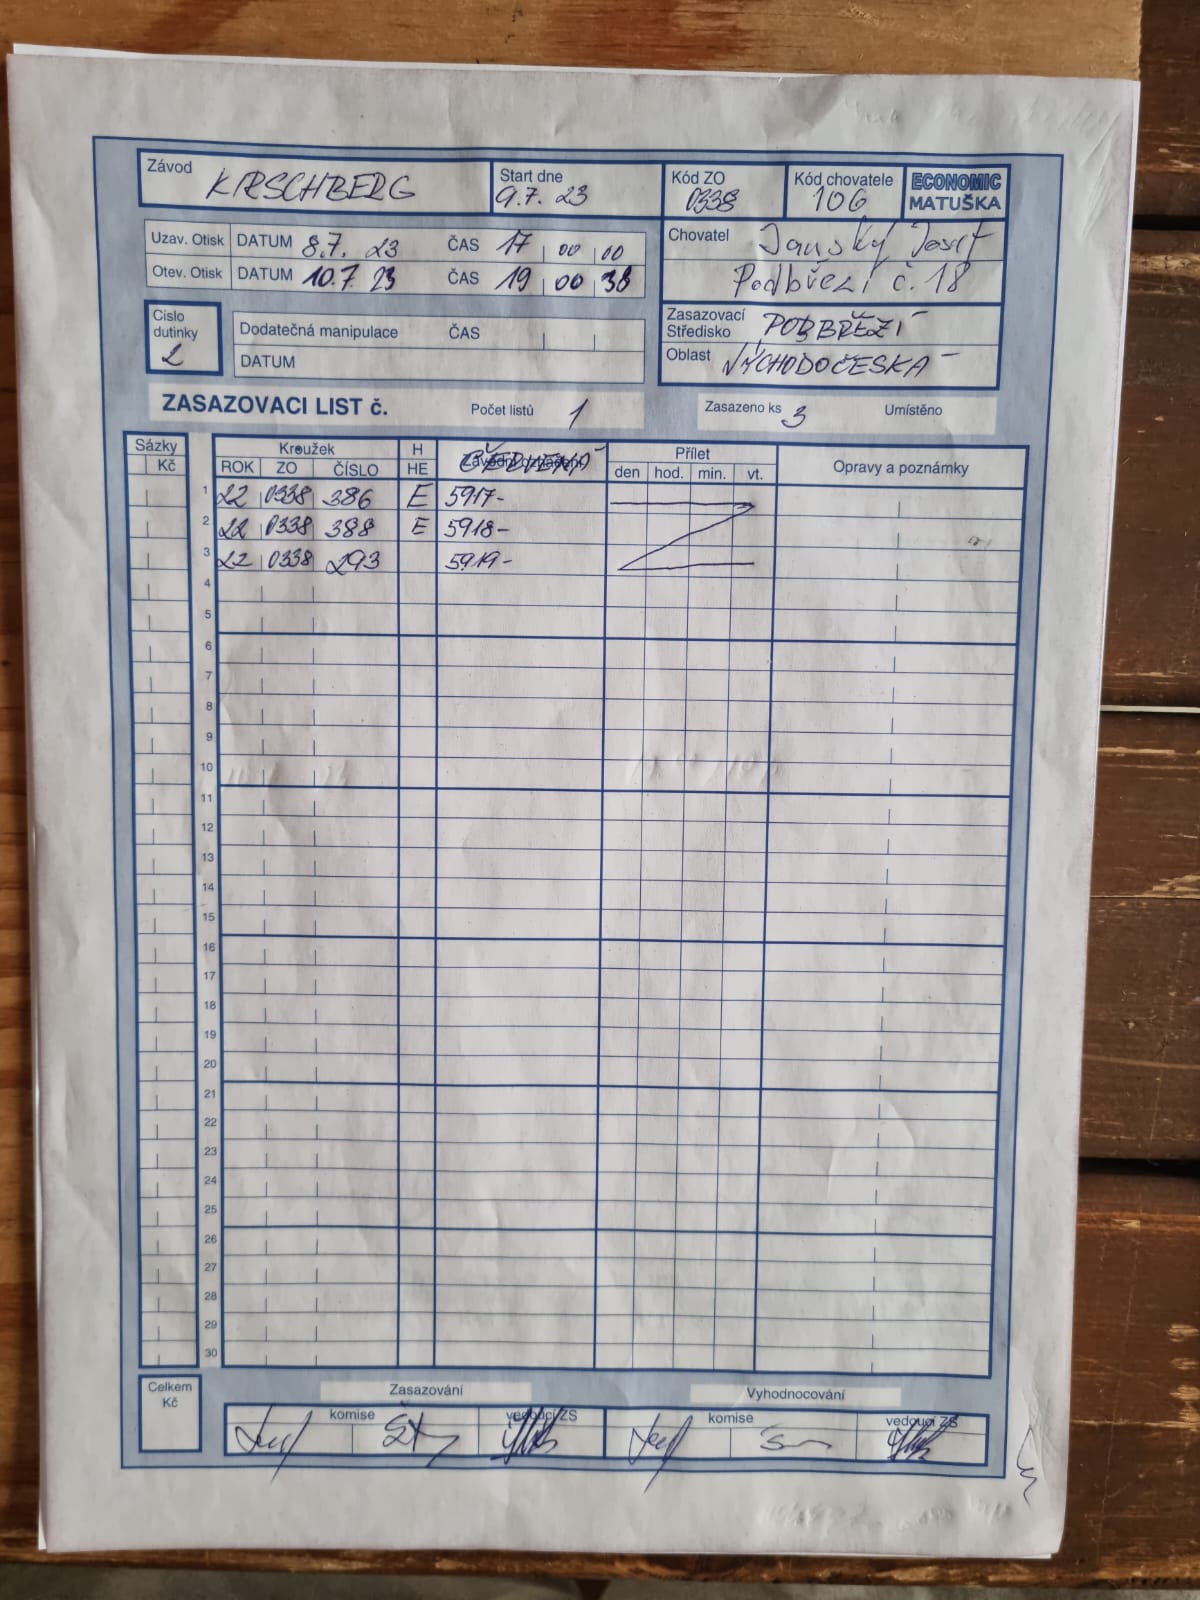 Závod KIRSCHBERG Start dne 9.7. 23 Kód ZO 0338 Kód chovatele 106 ECONOMIC MATUŠKA
Uzav. Otisk DATUM 8.7. 23 ČAS 17 00 00
Otev. Otisk DATUM 10.7. 23 ČAS 19 00 38
Chovatel Janský Josef
Podbřezí č. 18
Číslo dutinky 2
Dodatečná manipulace ČAS
DATUM
Zasazovací Středisko PODBŘEZÍ
Oblast VÝCHODOČESKÁ
ZASAZOVACI LIST č. Počet listů 1 Zasazeno ks 3 Umístěno
Sázky Kroužek H ČERVENÁ Přílet Opravy a poznámky
Kč ROK ZO ČÍSLO HE den hod. min. vt.
1 22 0338 386 E 5917-
2 22 0338 388 E 5918-
3 22 0338 293 5919-
4
5
6
7
8
9
10
11
12
13
14
15
16
17
18
19
20
21
22
23
24
25
26
27
28
29
30
Celkem Kč
Zasazování Vyhodnocování
komise vedoucí ZS komise vedoucí ZS